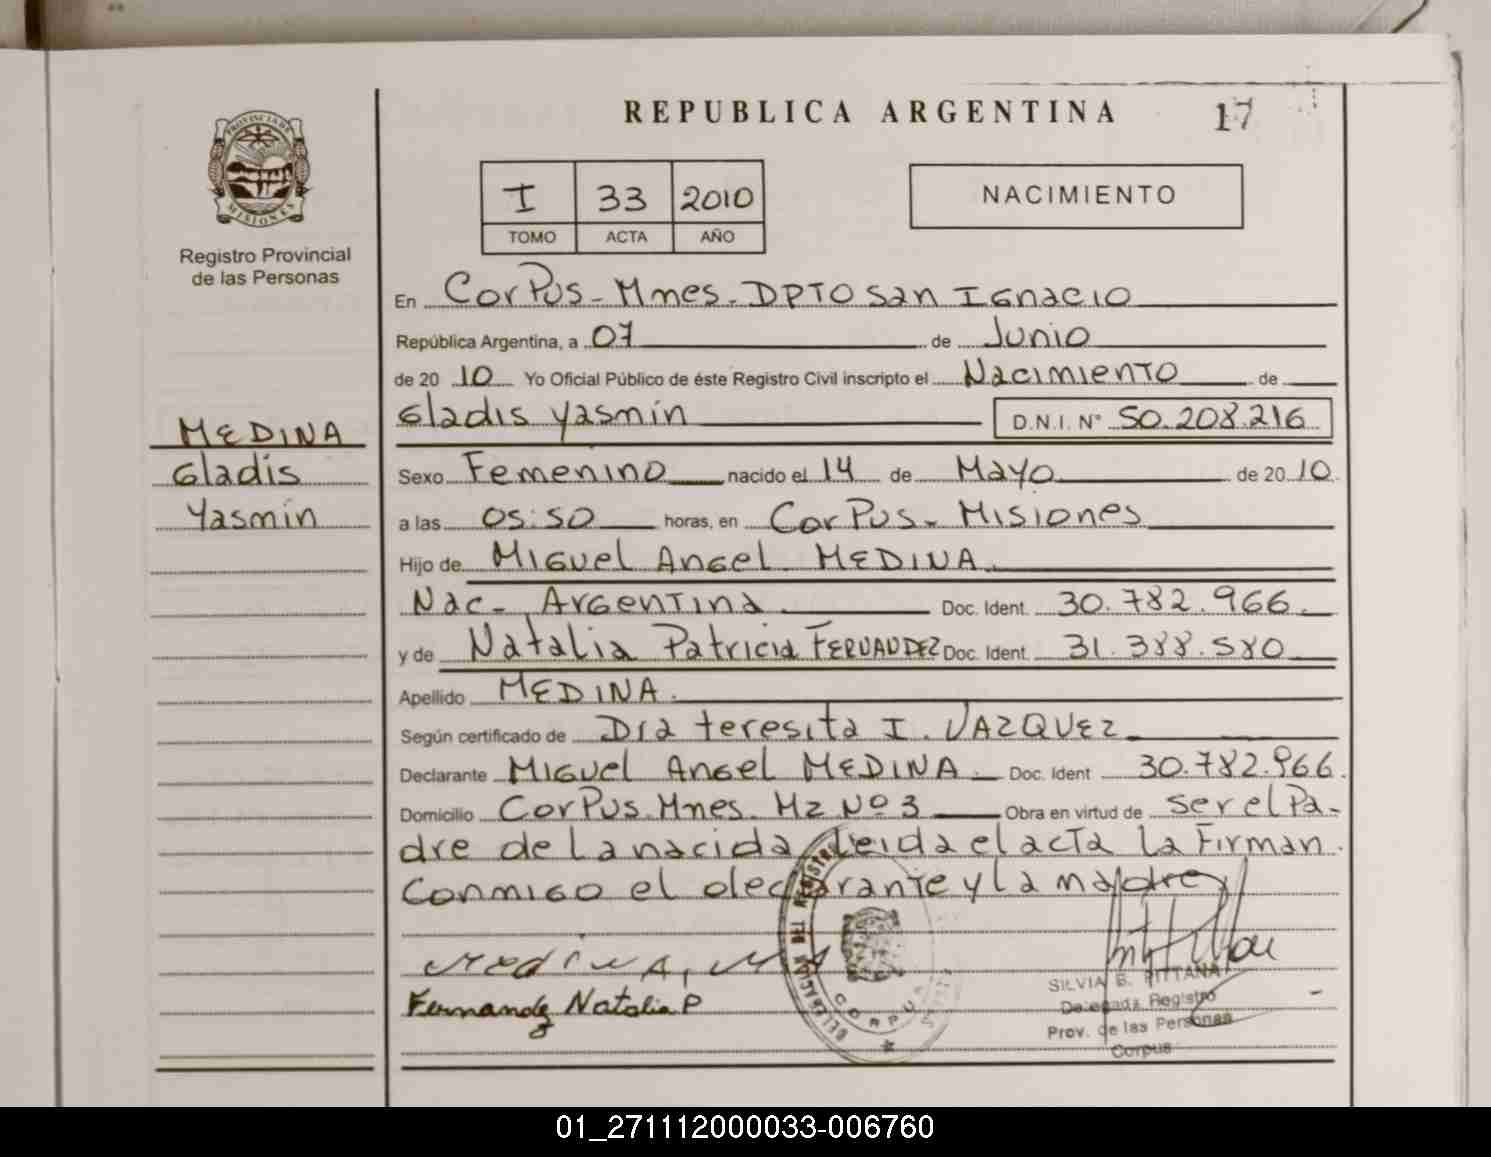 REPUBLICA ARGENTINA
17
PROVINCIA DE
MISIONES
Registro Provincial
de las Personas
I 33 2010
TOMO ACTA AÑO
NACIMIENTO
En Corpus - Mnes - DPTO San Ignacio
República Argentina, a 07 de Junio
de 20 10 Yo Oficial Público de éste Registro Civil inscripto el Nacimiento de
Gladis Yasmín D.N.I. N° 50.208.216
MEDINA
Gladis
Yasmín
Sexo Femenino nacido el 14 de Mayo de 20 10
a las 05:50 horas, en Corpus - Misiones
Hijo de Miguel Angel MEDINA
Nac - Argentina Doc. Ident. 30.782.966.
y de Natalia Patricia FERNANDEZ Doc. Ident. 31.388.580
Apellido MEDINA.
Según certificado de Dra teresita I. VAZQUEZ
Declarante Miguel Angel MEDINA Doc. Ident 30.782.966.
Domicilio Corpus. Mnes. Mz Nº 3 Obra en virtud de ser el Pa-
dre de la nacida Leida el acta la Firman
conmigo el declarante y la madre
Medina, M A
Fernandez Natalia P
DELEGACION DEL REGISTRO
CORPUS
SILVIA B. PITTANA
Delegada Registro
Prov. de las Personas
Corpus
01_271112000033-006760